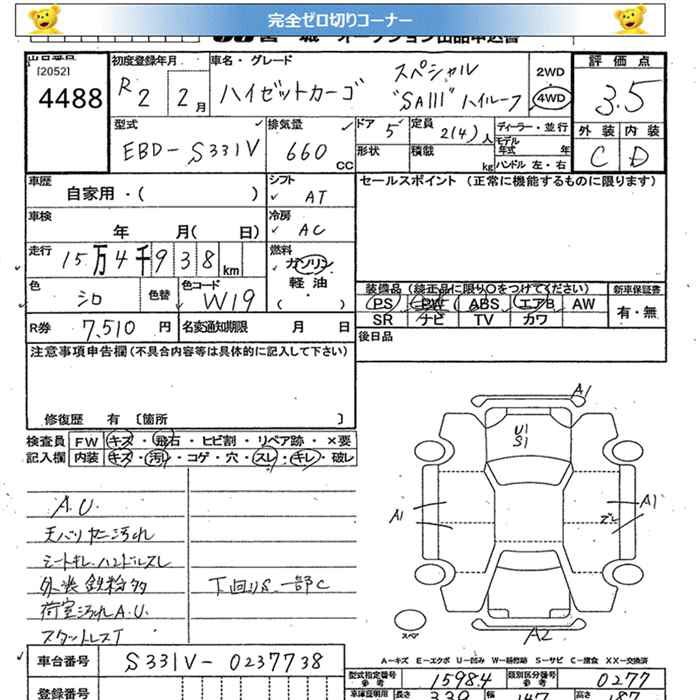 完全ゼロ切りコーナー
[2052]
4488
初度登録年月
R2 2月
車名・グレード
ハイゼットカーゴ
スペシャル
"SAIII" ハイルーフ
2WD
4WD
評価点
3.5
外装 内装
C D
型式
EBD-S331V
排気量
660 CC
ドア 5
定員 2(4)人
形状
積載 kg
ディーラー・並行
モデル年式 年
ハンドル 左・右
車歴
自家用・( )
シフト
AT
セールスポイント (正常に機能するものに限ります)
車検
年 月( 日)
冷房
AC
走行
15万4千938km
燃料
ガソリン
軽油
( )
色
シロ
色替
色コード
W19
装備品(純正品に限り○をつけてください)
PS PW ABS エアB AW
SR ナビ TV カワ
新車保証書
有・無
R券 7,510円
名変通知期限 月 日
後日品
注意事項申告欄(不具合内容等は具体的に記入して下さい)
修復歴 有 〔箇所 〕
検査員記入欄
FW キズ・飛石・ヒビ割・リペア跡・×要
内装 キズ・汚レ・コゲ・穴・スレ・キレ・破レ
A.U.
天バリヤニ汚れ
シートキレ.ハンドルスレ
外装鉄粉多
荷室汚れA.U.
スタットレスT
下回りS.一部C
A1
U1
S1
A1
A1
A2
スペア
A-キズ E-エクボ U-凹み W-補修跡 S-サビ C-腐食 XX-交換済
車台番号
S331V-0237738
登録番号
型式指定番号 参考
15984
類別区分番号 参考
0277
長さ
幅
高さ